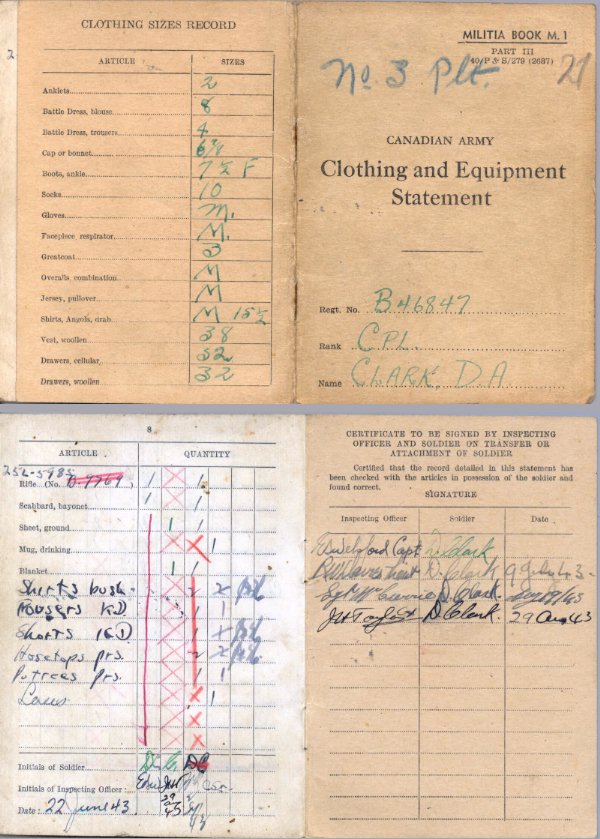 CLOTHING SIZES RECORD
ARTICLE SIZES
Anklets 2
Battle Dress, blouse 8
Battle Dress, trousers 4
Cap or bonnet
Boots, ankle 7½ F
Socks 10
Gloves M.
Facepiece respirator M.
Greatcoat 3
Overalls, combination M
Jersey, pullover M
Shirts, Angola, drab M 15½
Vest, woollen 38
Drawers, cellular 32
Drawers, woollen 32
MILITIA BOOK M. 1
PART III
40/P & S/279 (2687)
No. 3 Plt. 21
CANADIAN ARMY
Clothing and Equipment
Statement
Regt. No. B46847
Rank CPL.
Name CLARK, D.A
8
ARTICLE QUANTITY
25L-5985
Rifle (No. ) 1 1
Scabbard, bayonet 1 1
Sheet, ground 1
Mug, drinking 1
Blanket 1
Shirts bush 2
Trousers KD 1
Shorts KD 1
Hosetops prs. 2
Putrees prs. 1 1
1
Initials of Soldier
Initials of Inspecting Officer
Date: 22 June 43
CERTIFICATE TO BE SIGNED BY INSPECTING
OFFICER AND SOLDIER ON TRANSFER OR
ATTACHMENT OF SOLDIER
Certified that the record detailed in this statement has
been checked with the articles in possession of the soldier and
found correct.
SIGNATURE
Inspecting Officer Soldier Date
Capt D. Clark
D. Clark 9 July 43
D. Clark
D. Clark 29 Aug 43